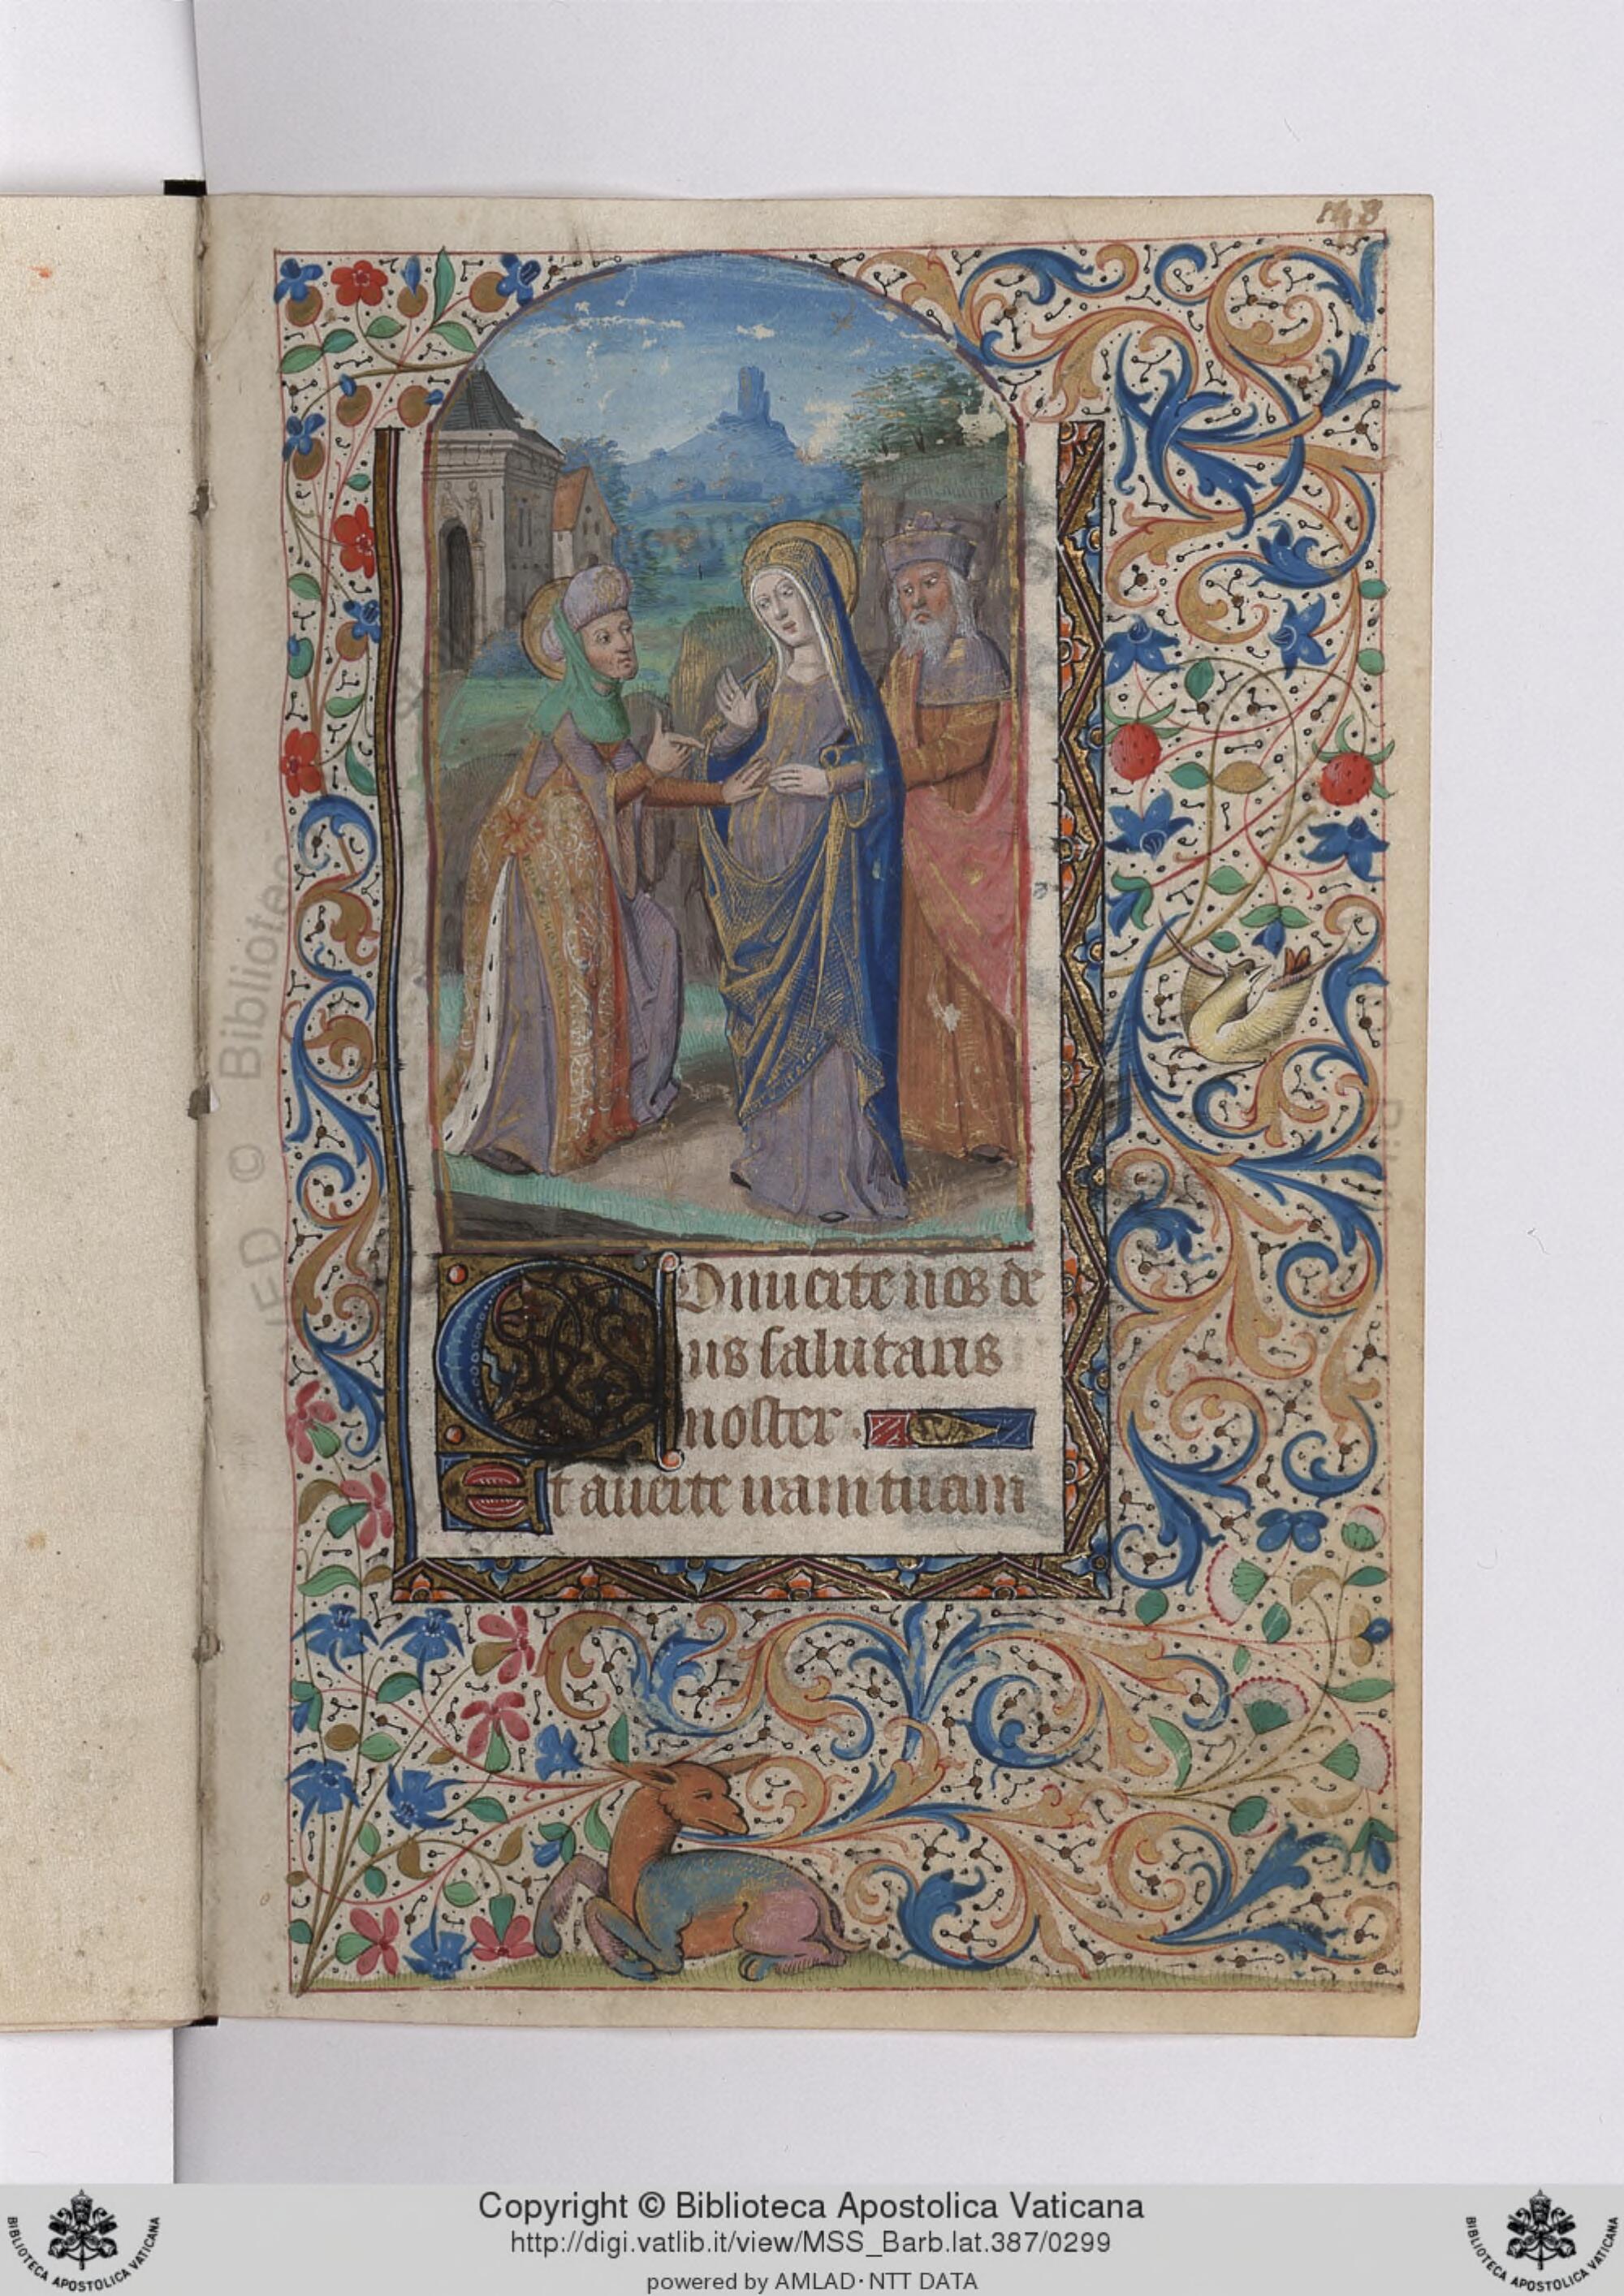 Conuerte nos de
us salutaris
noster .
Et auerte iram tuam
© Bibliotec
Copyright © Biblioteca Apostolica Vaticana
http://digi.vatlib.it/view/MSS_Barb.lat.387/0299
powered by AMLAD·NTT DATA
BIBLIOTECA APOSTOLICA VATICANA
BIBLIOTECA APOSTOLICA VATICANA